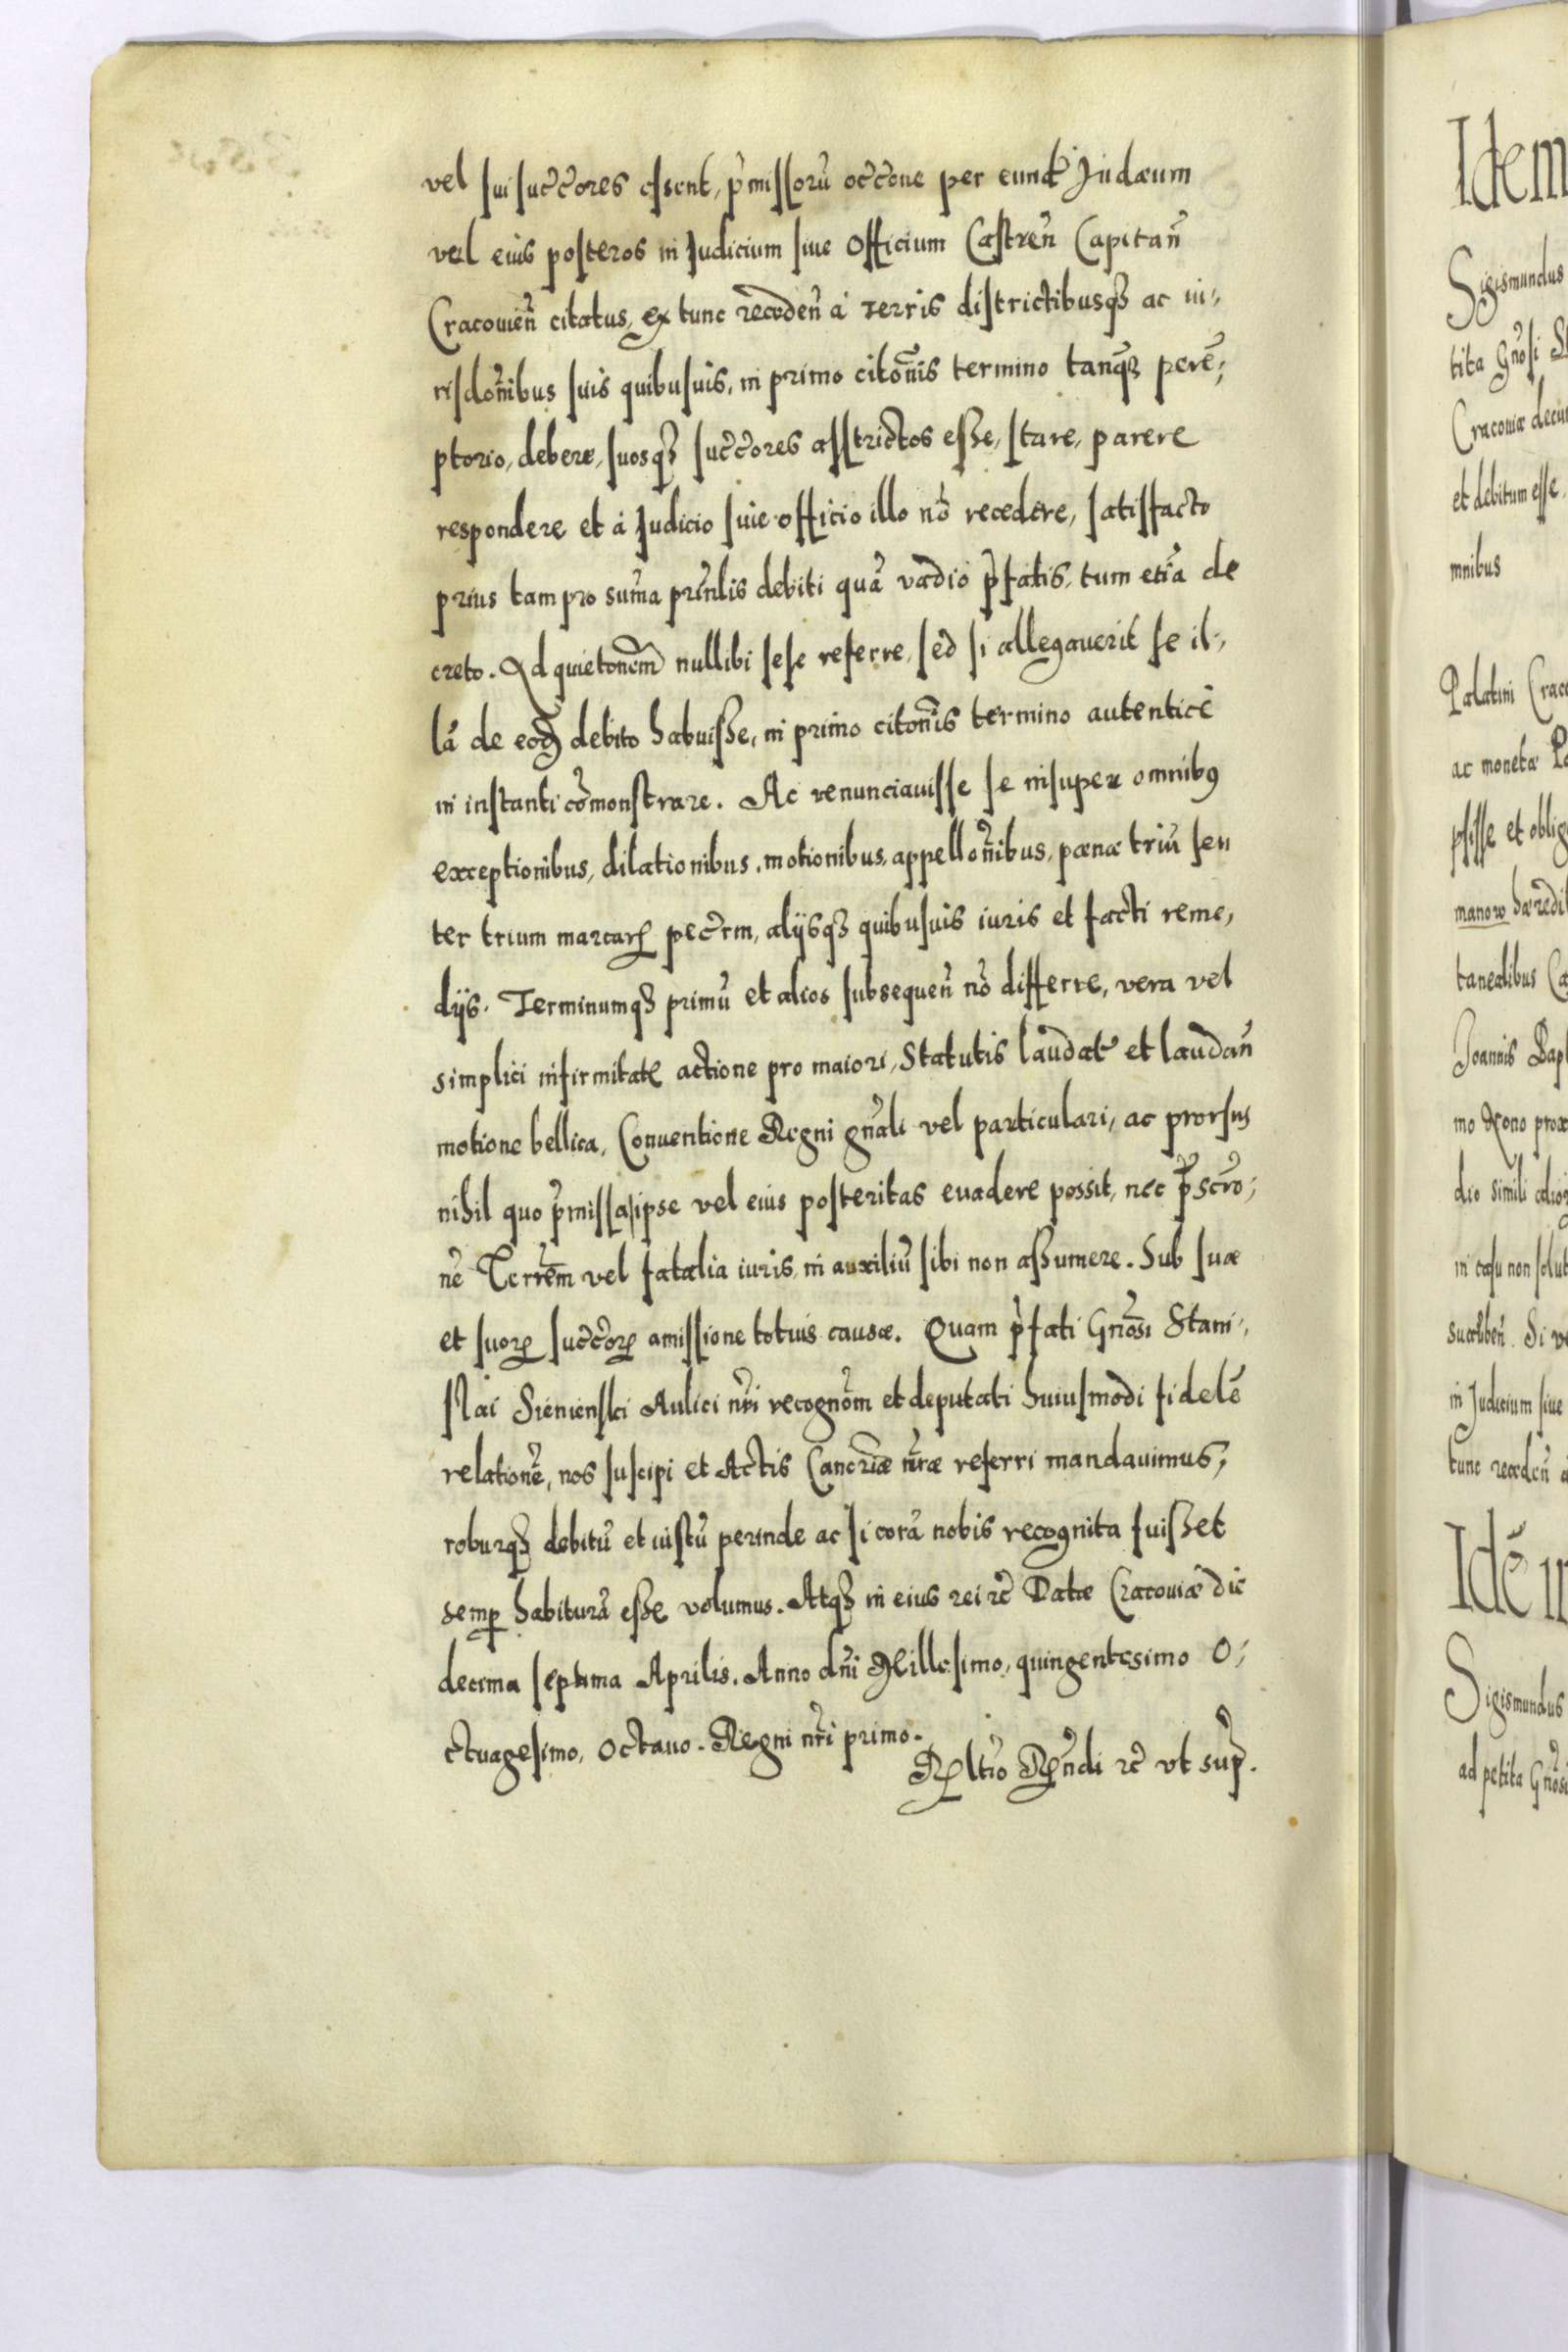 vel sui succ̃ores essent, p̃missorũ occ̃one per eund̃ Judæum
vel eius posteros in Judicium siue Officium Castren̄ Capitan̄
Cracouien̄ citatus, ex tunc recedeñ à terris districtibusqꝫ ac iu-,
risdõnibus suis quibusuis, in primo citõnis termino tanqꝫ perẽ;
ptorio, debere, suosqꝫ succ̃ores astrictos esse, stare, parere
respondere et à Judicio siue officio illo nõ recedere, satisfacto
prius tam pro suma prīnlis debiti quã vadio p̃fatis, tum etiã de
creto. Ad quietonem̃ nullibi sese referre, sed si allegauerit se il-,
lã de eodẽ debito habuisse, in primo citõnis termino autenticè
in instanti cõmonstrare. Ac renunciauisse se insuper omnibꝰ
exceptionibus, dilationibus, motionibus, appellõnibus, pænæ triũ seu
ter trium marcarꝝ pecr̃m, alijsqꝫ quibusuis iuris et facti reme,
dijs. Terminumqꝫ primũ et alios subsequeñ nõ differre, vera vel
simplici infirmitatẽ actione pro maiori, Statutis laudat̃ et laudañ
motione bellica, Conuentione Regni gñali vel particulari, ac prorsus
nihil quo p̃missa ipse vel eius posteritas euadere possit, nec p̃scr̃o;
nẽ Terrẽm vel fatalia iuris, in auxiliũ sibi non assumere. Sub suæ
et suorꝝ succ̃orꝝ amissione totius causæ. Quam p̃fati Gñosi Stani-,
slai Sienienski Aulici nr̃i recognõm et deputati huiusmodi fidelẽ
relationẽ, nos suscipi et Actis Cancriæ nr̃æ referri mandauimus;
roburqꝫ debitũ et iustũ perinde ac si corã nobis recognita fuisset
semꝑ habiturã esse volumus. Atqꝫ in eius rei ꝛc̃ Datæ Cracouiæ die
decima septima Aprilis. Anno dñi Millesimo, quingentesimo O;
ctuagesimo, Octauo. Regni nr̃i primo.
Rltio Rñdi ꝛc̃ vt sup̃.
Idem
Sigismundus
tita Gñosi St
Cracouiæ decim
et debitum esse.
mnibus
Palatini Craco
ac monetæ Po
psisse et oblig
manow hæredit
taneatibus Ca
Joannis Bap
mo Nono prox
dio simili alior
in casu non solut
sucribeñ. Si ve
in Judicium siue
tunc recedeñ à
Idẽ
Sigismundus
ad petita Gñosi